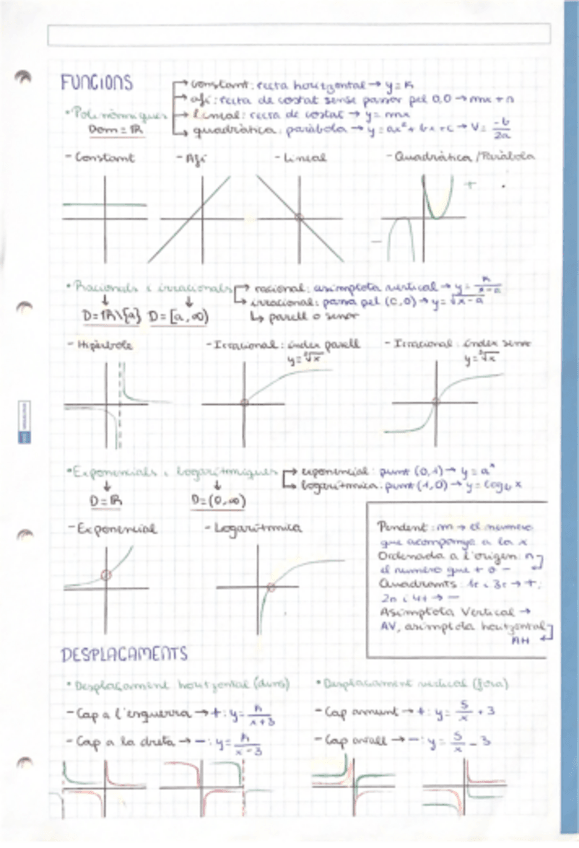 FUNCIONS
→ constant: recta horitzontal → y = k
→ afí: recta de costat sense passar pel 0,0 → mx + n
• Polinòmiques → lineal: recta de costat → y = mx
Dom = ℝ → quadràtica: paràbola → y = ax² + bx + c → V = -b/2a
- Constant - Afí - Lineal - Quadràtica / Paràbola
+
−
• Racionals i irracionals → racional: asímptota vertical → y = k/x-a
→ irracional: passa pel (0,0) → y = √x-a
D = ℝ\{a} D = [a, ∞) ↳ parell o senar
- Hipèrbole - Irracional: índex parell - Irracional: índex senar
• Exponencials i logarítmiques → exponencial: punt (0,1) → y = aˣ
→ logarítmica: punt (1,0) → y = log x
D = ℝ D = (0, ∞)
- Exponencial - Logarítmica
Pendent: m → el número
que acompanya a la x
Ordenada a l'origen: n
el número que + o −
Quadrants: 1r i 3r → +,
2n i 4t → −
Asímptota Vertical →
AV, asímptota horitzontal
AH
DESPLAÇAMENTS
• Desplaçament horitzontal (dins) • Desplaçament vertical (fora)
- Cap a l'esquerra → + : y = k/x+3 - Cap amunt → + : y = 5/x + 3
- Cap a la dreta → − : y = k/x-3 - Cap avall → − : y = 5/x - 3